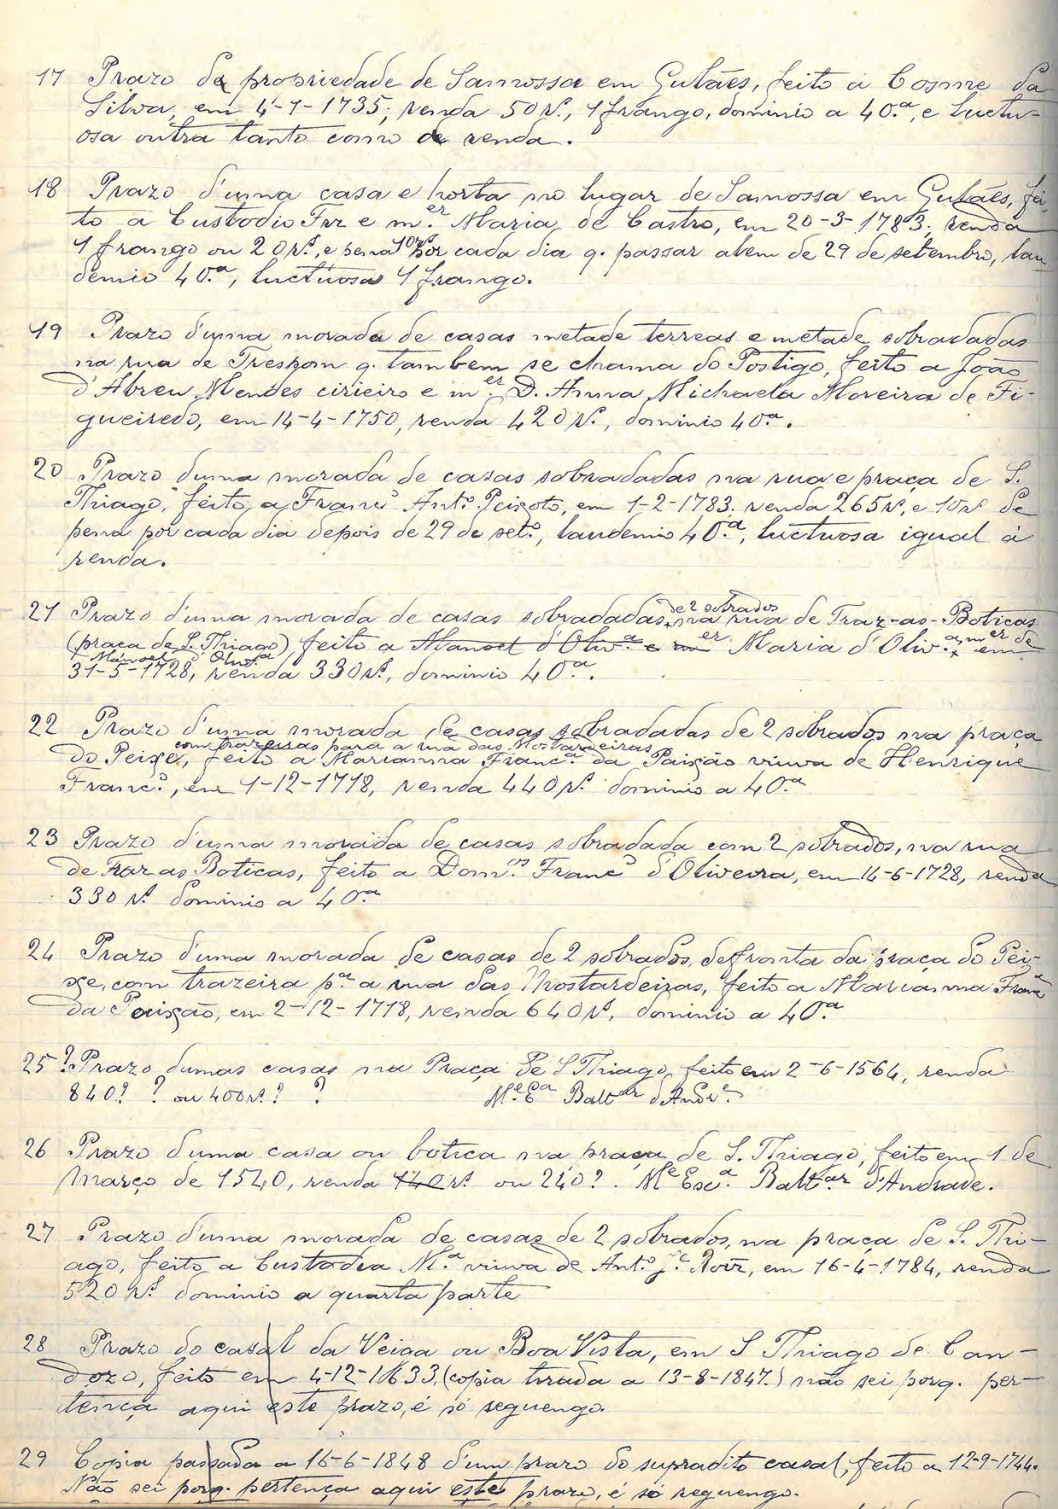 17 Prazo da propriedade de Samossa em Gulães, feito a Cosme da
Silva, em 4-1-1735; renda 50 rs., 1 frango, dominio a 40.ª, e luctu-
osa outra tanto como de renda.
18 Prazo d'uma casa e horta no lugar de Samossa em Gulães, fei-
to a Custodio Frz e m.er Maria de Castro, em 20-3-1783; renda
1 frango ou 20 rs., e pena 10 rs. por cada dia q. passar alem de 29 de setembro, lau
demio 40.ª, luctuosa 1 frango.
19 Prazo d'uma morada de casas metade terreas e metade sobradadas
na rua de Trespom q. tambem se chama do Postigo, feito a João
d'Abreu Mendes cirieiro e m.er D. Anna Michaela Moreira de Fi-
gueiredo, em 14-4-1750, renda 420 rs., dominio 40.ª.
20 Prazo duma morada de casas sobradadas na rua e praça de S.
Thiago, feito a Franc.º Ant.º Peixoto, em 1-2-1783, renda 265 rs., e 10 rs de
pena por cada dia depois de 29 de set.º, laudemio 40.ª, luctuosa igual á
renda.
21 Prazo d'uma morada de casas sobradadas, de 2 sobrados na rua de Traz-as-Boticas
(praça de S. Thiago) feito a Manoel d'Oliv.ª e m.er Maria d'Oliv.ª, m.er de
Manoel d'Oliv.ª em
31-5-1728, renda 330 rs., dominio 40.ª.
22 Prazo d'uma morada de casas sobradadas de 2 sobrados na praça
com trazeiras para a rua das Mostardeiras
do Peixe, feito a Marianna Franc.ª da Paixão viuva de Henrique
Franc.º, em 1-12-1718, renda 440 rs. dominio a 40.ª
23 Prazo d'uma morada de casas sobradada com 2 sobrados, na rua
de Traz as Boticas, feito a Dom.os Franc.º d'Oliveira, em 14-6-1728, renda
330 rs. dominio a 40.ª
24 Prazo d'uma morada de casas de 2 sobrados, defronta da praça do Pei-
xe, com trazeira p.ª a rua das Mostardeiras, feito a Marianna Franc.ª
da Paixão, em 2-12-1718, renda 640 rs., dominio a 40.ª
25? Prazo dumas casas na Praça de S Thiago, feito em 2-6-1564, renda
840? ? ou 400 rs.? ? M.e E.a Balt.ar d'Andr.e
26 Prazo duma casa ou botica na praça de S. Thiago, feito em 1 de
Março de 1540, renda 140 rs. ou 240?. M.e Esc.ª Balt.ar d'Andrade.
27 Prazo d'uma morada de casas de 2 sobrados, na praça de S. Thi-
ago, feito a Custodia M.ª viuva de Ant.º J.e Roiz, em 16-4-1784, renda
520 rs. dominio a quarta parte
28 Prazo do casal da Veiga ou Boa Vista, em S Thiago de Can-
dozo, feito em 4-12-1633, (copia tirada a 13-8-1847.) não sei porq. per-
tença aqui este prazo, é só reguengo.
29 Copia passada a 16-6-1848 d'um prazo do supradito casal, feito a 12-9-1744.
Não sei porq. pertença aqui este prazo, é só reguengo.